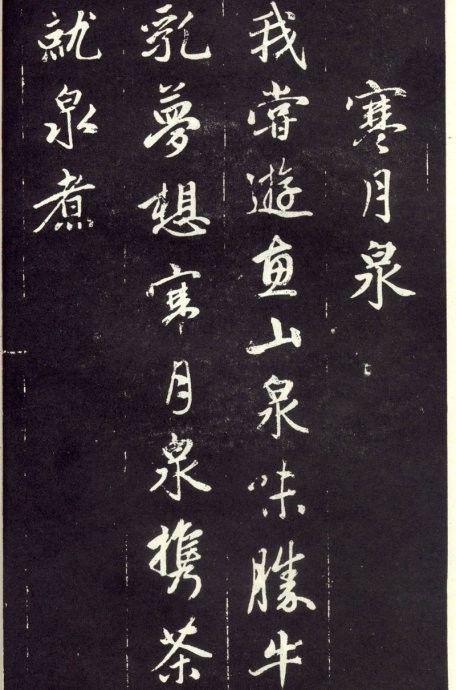 寒月泉
我嘗遊惠山泉味勝牛
乳夢想寒月泉攜茶
就泉煮